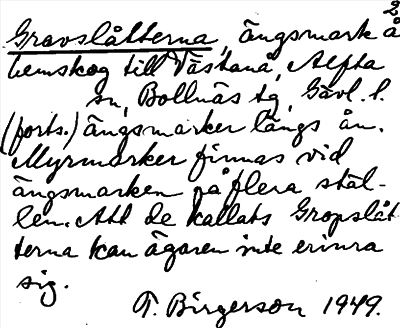 2
Gravslåtterna, ängsmark å
hemskog till Västanå, Alfta
sn, Bollnäs tg, Gävl. l.
(forts.) ängsmarker längs ån.
Myrmarker finnas vid
ängsmarken på flera stäl-
len. Att de kallats Gropslåt
terna kan ägaren inte erinra
sig.
T. Birgerson 1949.